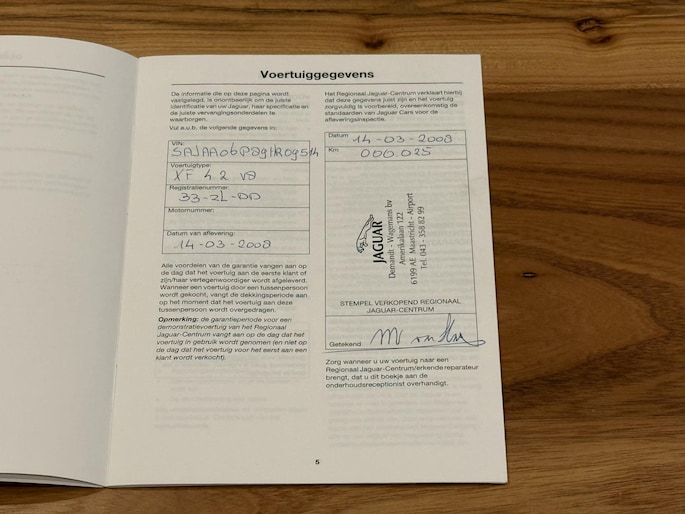 Voertuiggegevens
De informatie die op deze pagina wordt
vastgelegd, is onontbeerlijk om de juiste
identificatie van uw Jaguar, haar specificatie en
de juiste vervangingsonderdelen te
waarborgen.
Vul a.u.b. de volgende gegevens in:
VIN:
Voertuigtype:
XF 4.2 V8
Registratienummer:
33-ZL-DD
Motornummer:
Datum van aflevering:
14-03-2008
Alle voordelen van de garantie vangen aan op
de dag dat het voertuig aan de eerste klant of
zijn/haar vertegenwoordiger wordt afgeleverd.
Wanneer een voertuig door een tussenpersoon
wordt gekocht, vangt de dekkingsperiode aan
op het moment dat het voertuig aan deze
tussenpersoon wordt overgedragen.
Opmerking: de garantieperiode voor een
demonstratievoertuig van het Regionaal
Jaguar-Centrum vangt aan op de dag dat het
voertuig in gebruik wordt genomen (en niet op
de dag dat het voertuig voor het eerst aan een
klant wordt verkocht).
Het Regionaal Jaguar-Centrum verklaart hierbij
dat deze gegevens juist zijn en het voertuig
zorgvuldig is voorbereid, overeenkomstig de
standaarden van Jaguar Cars voor de
afleveringsinspectie.
Datum 14-03-2008
Km 000.025
JAGUAR
Demandt - Wagemans bv
Amerikalaan 122
6199 AE Maastricht - Airport
Tel. 043 - 358 82 99
STEMPEL VERKOPEND REGIONAAL
JAGUAR-CENTRUM
Getekend
Zorg wanneer u uw voertuig naar een
Regionaal Jaguar-Centrum/erkende reparateur
brengt, dat u dit boekje aan de
onderhoudsreceptionist overhandigt.
5